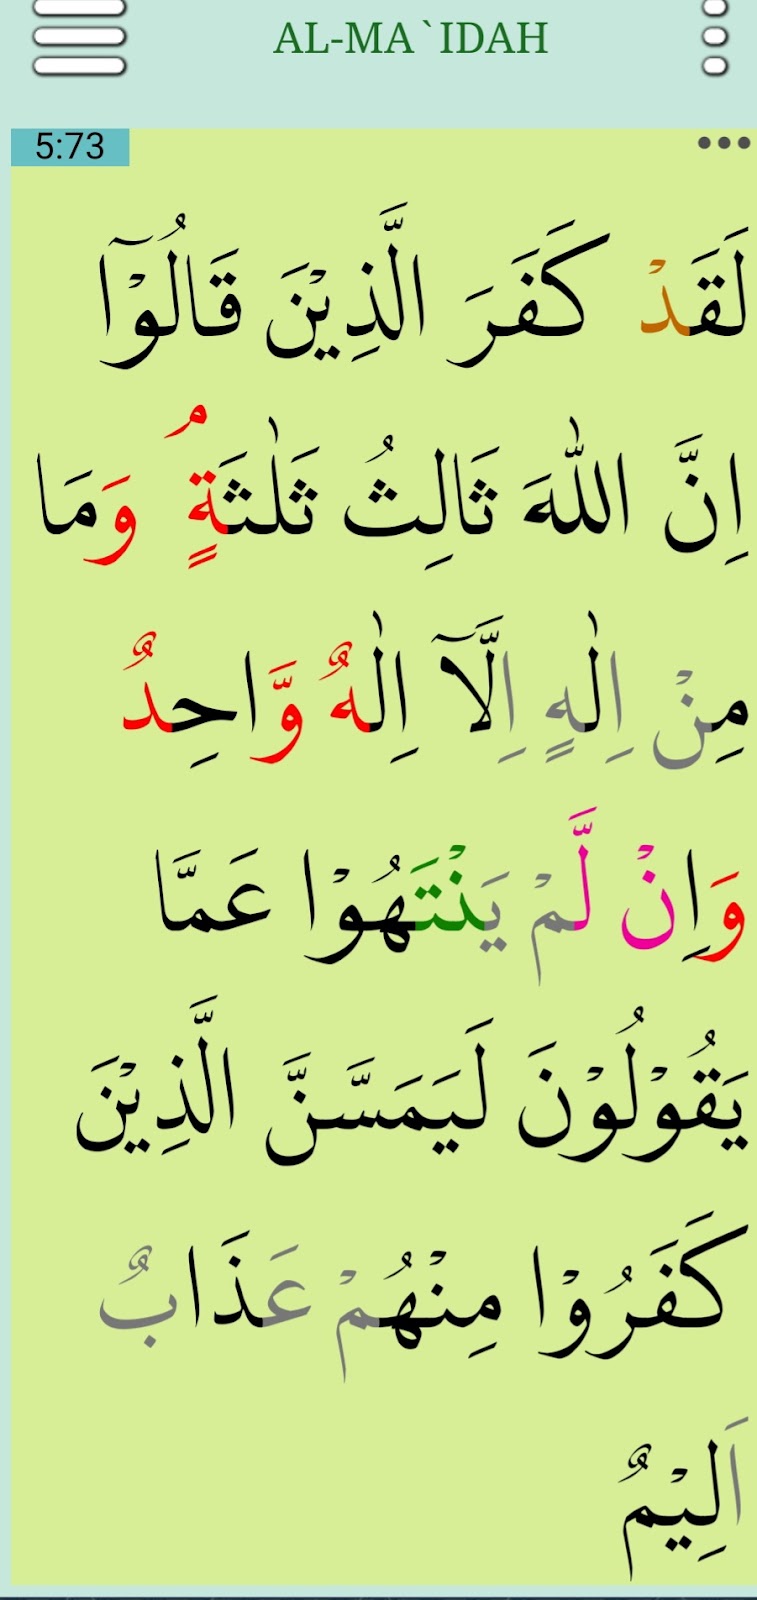 AL-MA`IDAH
5:73
لَقَدْ كَفَرَ الَّذِيْنَ قَالُوْٓا
اِنَّ اللّٰهَ ثَالِثُ ثَلٰثَةٍ ۘ وَمَا
مِنْ اِلٰهٍ اِلَّآ اِلٰهٌ وَّاحِدٌ
وَاِنْ لَّمْ يَنْتَهُوْا عَمَّا
يَقُوْلُوْنَ لَيَمَسَّنَّ الَّذِيْنَ
كَفَرُوْا مِنْهُمْ عَذَابٌ
اَلِيْمٌ